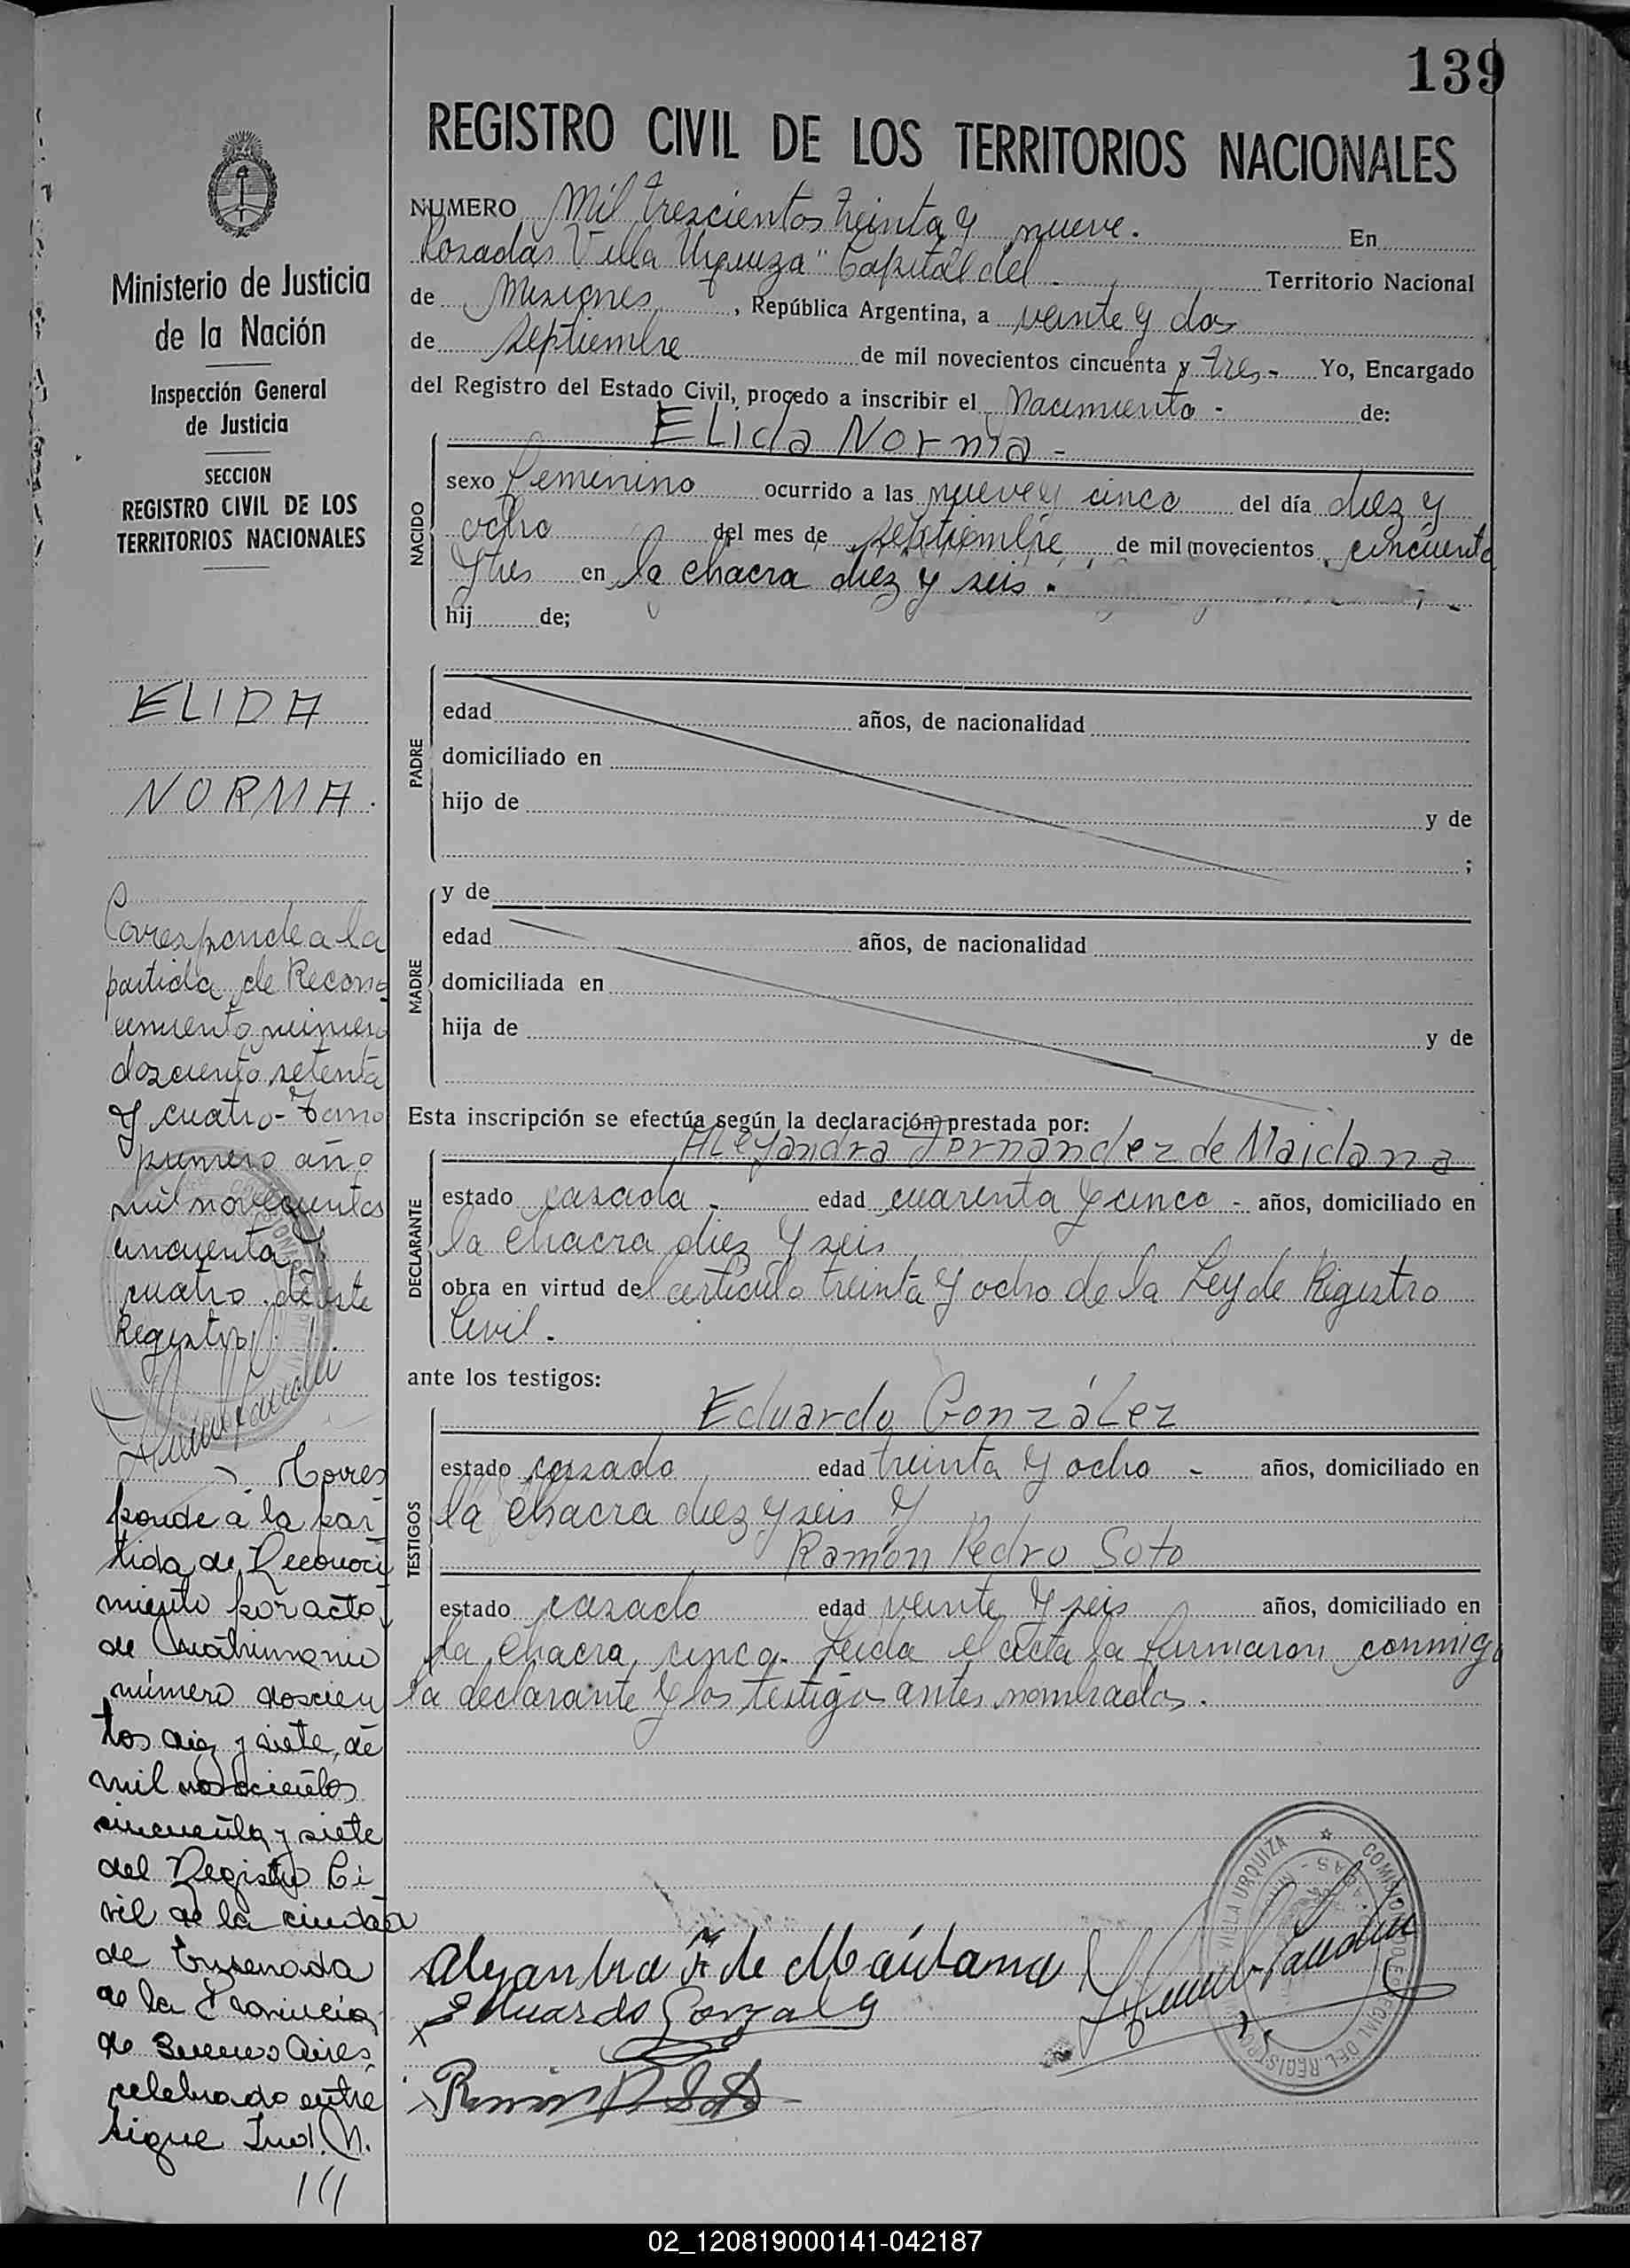 139
REGISTRO CIVIL DE LOS TERRITORIOS NACIONALES
Ministerio de Justicia
de la Nación
Inspección General
de Justicia
SECCION
REGISTRO CIVIL DE LOS
TERRITORIOS NACIONALES
ELIDA
NORMA.
Corresponde a la
partida de Recono
cimiento número
dosciento setenta
y cuatro - Tomo
primero año
mil novecientos
cincuenta y
cuatro de este
Registro.
Corres
ponde a la par
tida de Reconoci
miento por acto
de Matrimonio
número doscien
tos diez y siete, de
mil novecientos
cincuenta y siete
del Registro Ci
vil de la ciudad
de Ensenada
de la Provincia
de Buenos Aires,
celebrado entre
sigue Ind. N.
///
NUMERO Mil trescientos treinta y nueve. En
Posadas Villa Urquiza" Capital del Territorio Nacional
de Misiones, República Argentina, a veinte y dos
de septiembre de mil novecientos cincuenta y tres - Yo, Encargado
del Registro del Estado Civil, procedo a inscribir el Nacimiento - de:
NACIDO
Elida Norma -
sexo femenino ocurrido a las nueve y cinco del día diez y
ocho del mes de septiembre de mil novecientos cincuenta
y tres en la chacra diez y seis.
hij de;
PADRE
edad años, de nacionalidad
domiciliado en
hijo de y de
;
MADRE
y de
edad años, de nacionalidad
domiciliada en
hija de y de
Esta inscripción se efectúa según la declaración prestada por:
DECLARANTE
Aleyandra Fernandez de Maidana
estado casada - edad cuarenta y cinco - años, domiciliado en
la chacra diez y seis
obra en virtud del articulo treinta y ocho de la Ley de Registro
Civil.
ante los testigos:
TESTIGOS
Eduardo González
estado casado edad treinta y ocho - años, domiciliado en
la chacra diez y seis y
Ramón Pedro Soto
estado casado edad veinte y seis años, domiciliado en
la chacra cinco. Leida el acta la firmaron conmigo
la declarante y los testigos antes nombrados.
Alejandra F. de Maidana
Eduardo Gonzalez
Ramon P Soto
VILLA URQUIZA
DEL REGISTRO
02_120819000141-042187